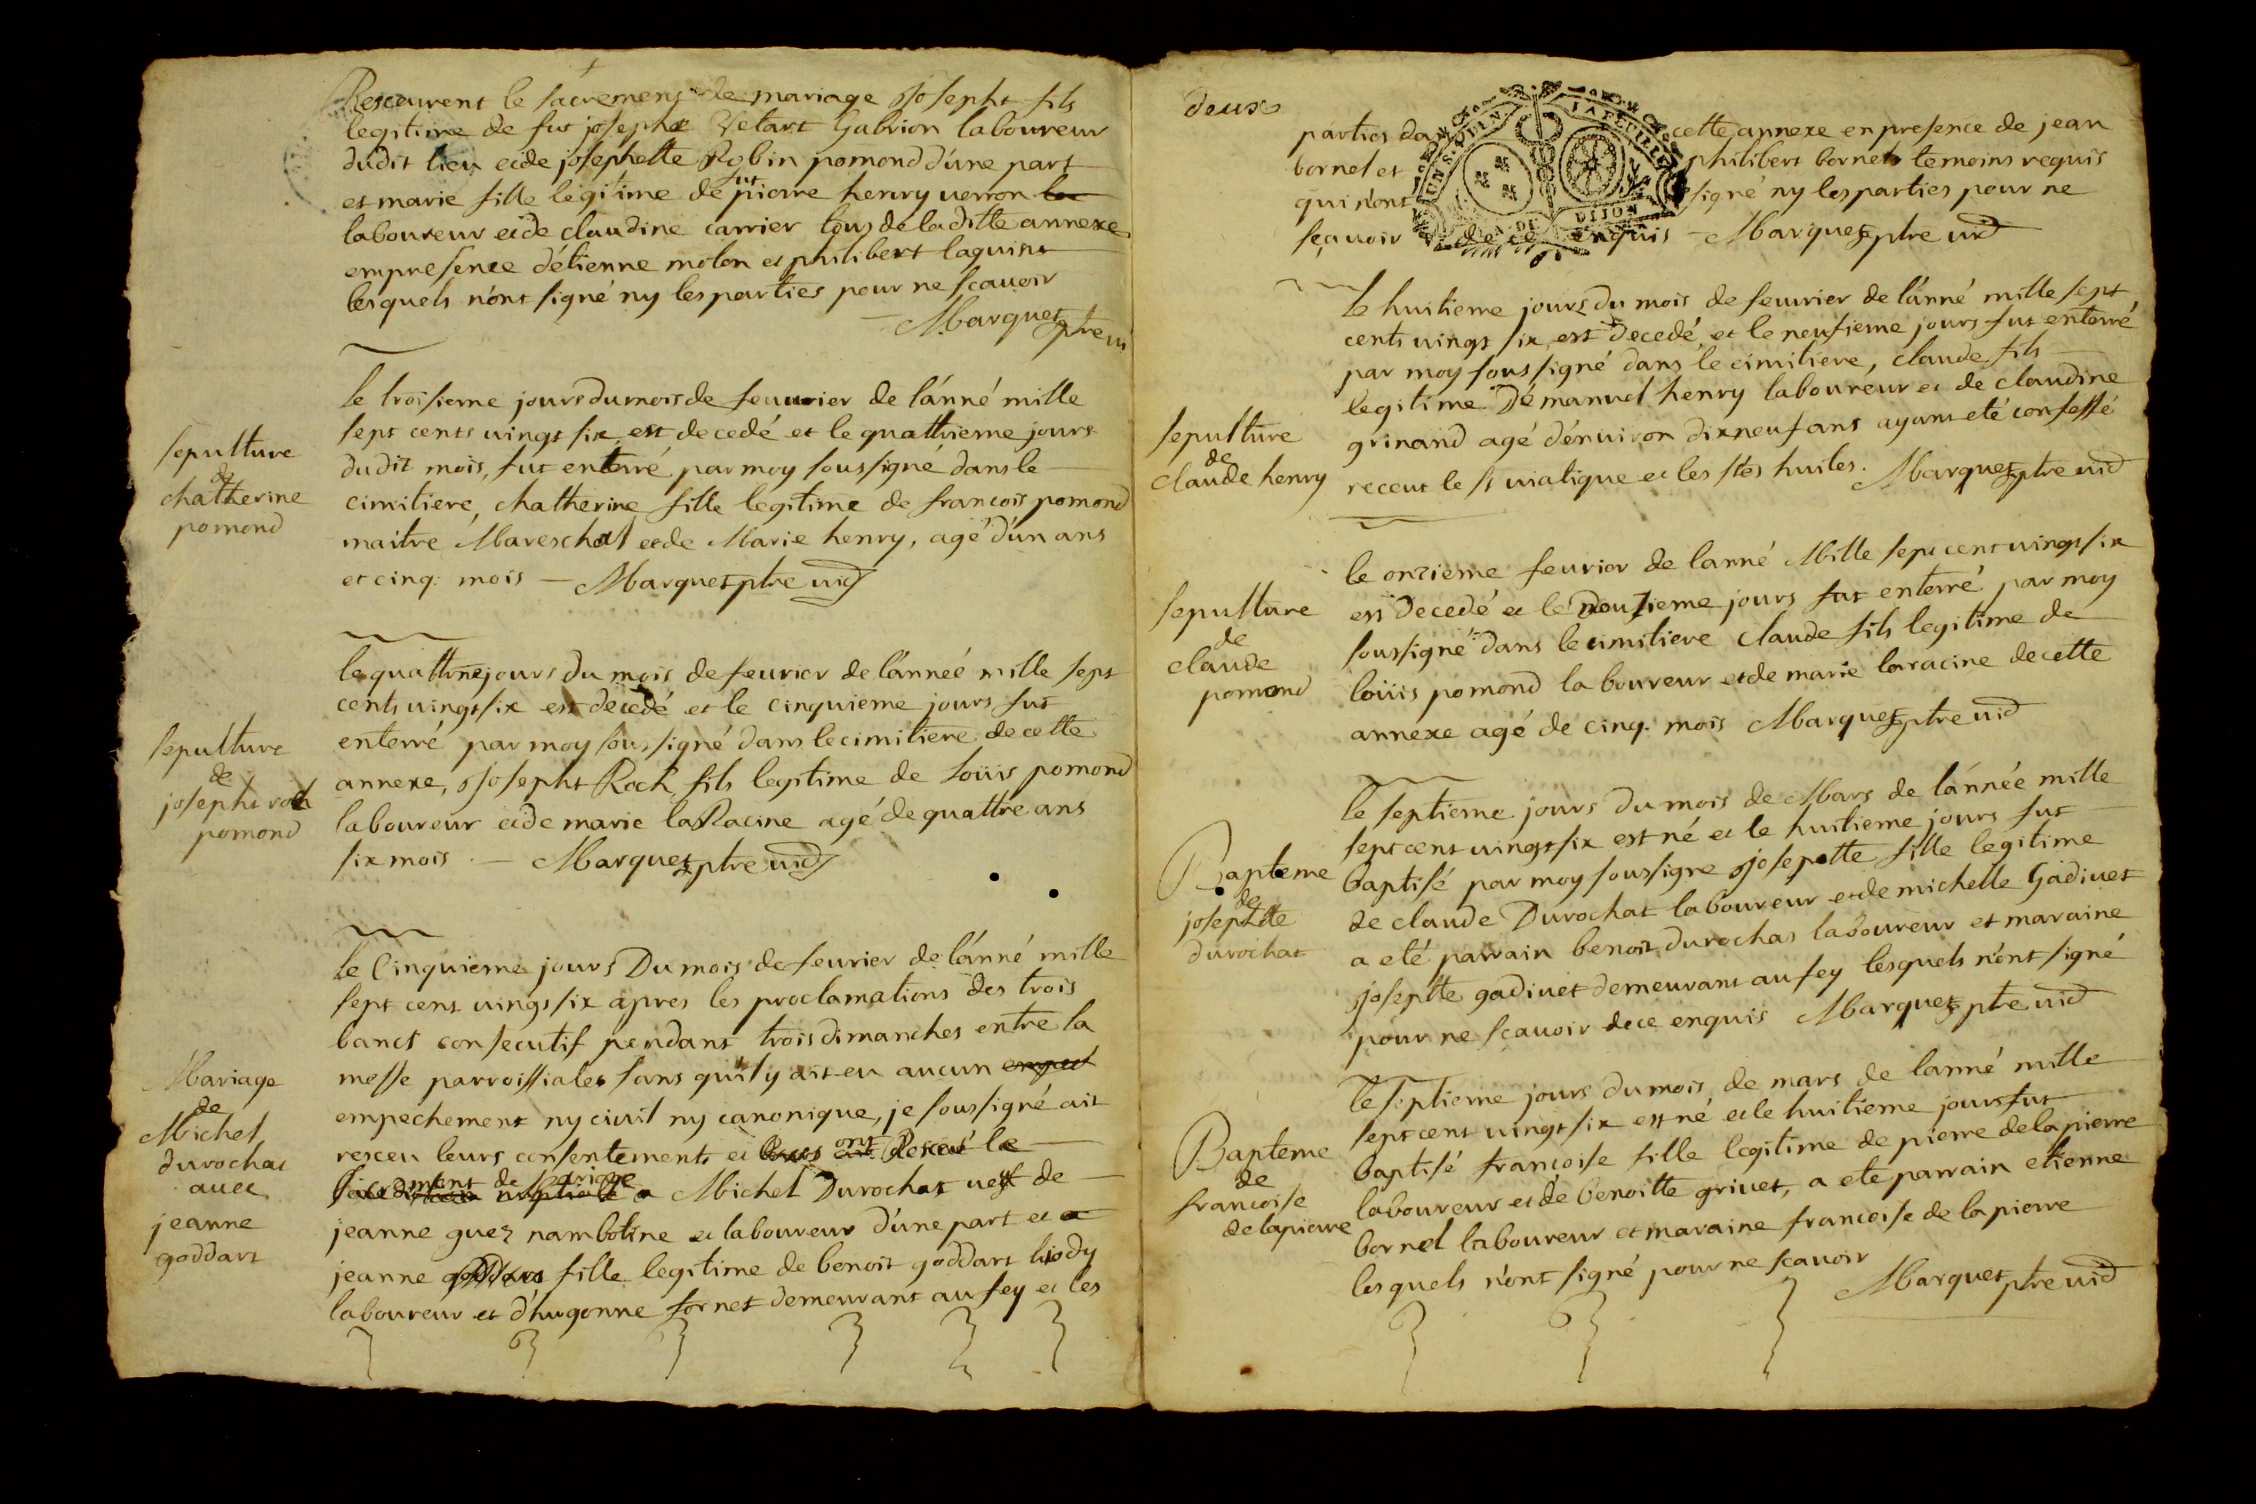 Resceurent le sacrement de mariage Josepht fils
legitime de fut josepht Vetart Gabrion laboureur
dudit lieu et de josephette Robin pomond d'une part
et marie fille legitime de fut pierre henry verron
laboureur et de claudine carrier tous de laditte annexe
empresence d'etienne moton et philibert laguint
lesquels n'ont signé ny les parties pour ne scavoir
Marquet ptre vi
sepulture
de
chatherine
pomond
le troisieme jours du mois de feuvrier de l'anné mille
sept cents vingt six est decedé et le quattrieme jours
dudit mois, fut enterré par moy soussigné dans le
cimitiere, chatherine fille legitime de francois pomond
maitre Mareschal et de Marie henry, agé d'un ans
et cinq: mois — Marquet ptre vid
sepulture
de
josepht roch
pomond
le quattrme jours du mois de feurier de l'anneé mille sept
cents vingt six est decedé et le cinquieme jours fut
enterré par moy soussigné dans le cimitiere de cette
annexe, Josepht Rock fils legitime de Loüis pomond
laboureur et de marie la Racine agé de quattre ans
six mois — Marquet ptre vid
Mariage
de
Michel
durochat
avec
jeanne
goddart
le Cinquieme jours Du mois de feurier de l'anné mille
sept cent vingt six apres les proclamations des trois
banct consecutif pendant trois dimanches entre la
messe parroissiales sans quil y ait eu aucun empech
empechement ny civil ny canonique, je soussigné ait
resceu leurs consentements et ont Resceu le
sacrement de Mariage Michel Durochat vesf de
jeanne guez nambotine et laboureur d'une part et
jeanne goddart fille legitime de benoit goddart liody
laboureur et d'hugonne fornet demeurant au fey et les
deux
parties da cette annexe en presence de jean
bornel et philibert bornel temoins requis
qui n'ont signé ny les parties pour ne
sçavoir de ce enquis — Marquet ptre vid
UN S. 
LA FEUILLE
DIJON
sepulture
de
claude henry
le huitieme jours du mois de feuvrier de l'anné mille sept
cents vingt six est decedé, et le neufieme jours fut enterré
par moy soussigné dans le cimitiere, claude fils
legitime D'émanuel henry laboureur et de claudine
grinand agé d'environ dixneuf ans ayant eté confessé
receut le st viatique et les stes huiles. Marquet ptre vid
sepulture
de
claude
pomond
le onzieme feurier de lanné Mille sept cent vingt six
est Decedé et le Douzieme jours fut enterré par moy
soussigné dans le cimitiere Claude fils legitime de
loüis pomond laboureur et de marie laracine de cette
annexe agé de cinq: mois Marquet ptre vid
Bapteme
de
josephtte
durochat
le septieme jours du mois de Mars de l'année mille
sept cent vingt six est né et le huitieme jours fut
baptisé par moy soussigne Josepotte fille legitime
de claude Durochat laboureur et de michelle Gadivet
a eté parrain benoit durochat laboureur et maraine
Josephtte gadivet demeurant au fey lesquels n'ont signé
pour ne sçavoir de ce enquis Marquet ptre vid
Bapteme
de
francoise
delapierre
le septieme jours du mois de mars de lanné mille
sept cent vingt six est né et le huitieme jours fut
baptisé francoise fille legitime de pierre delapierre
laboureur et de benoitte grivet, a eté parrain etienne
bornel laboureur et maraine francoise de lapierre
lesquels n'ont signé pour ne scavoir
Marquet ptre vid